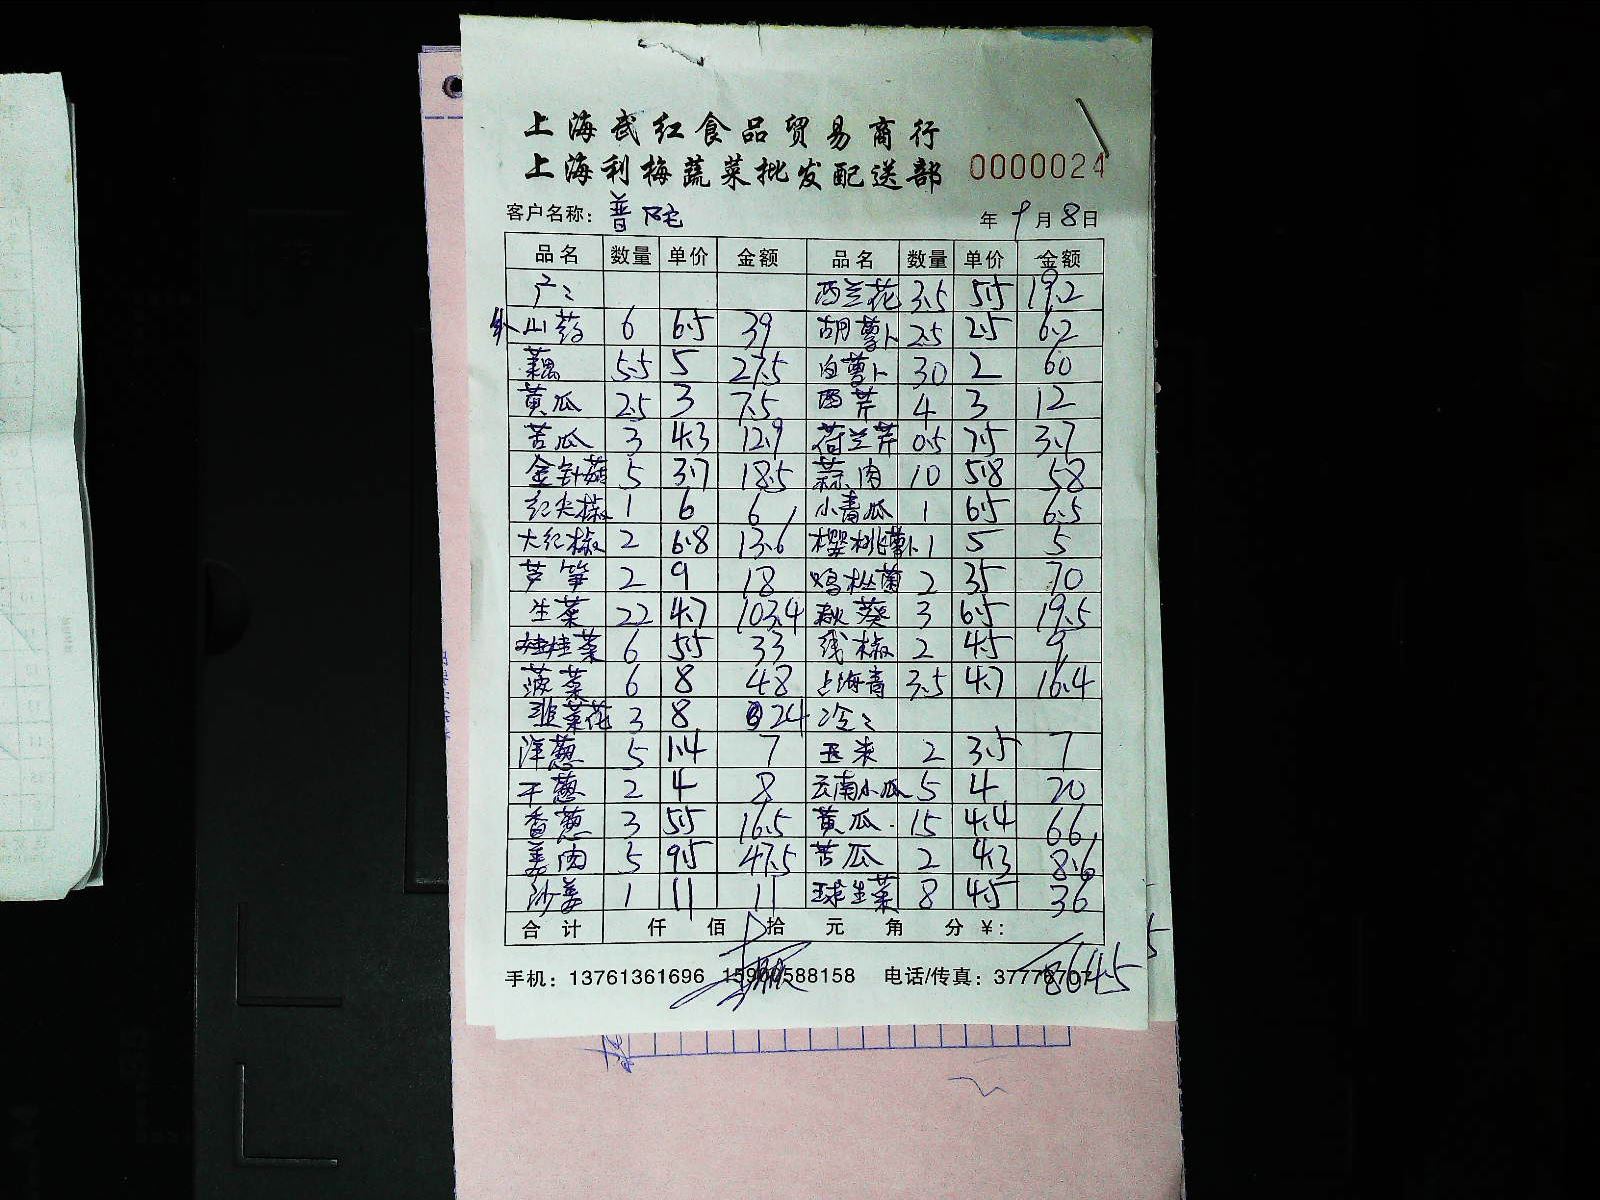 上海武红食品贸易商行
上海利梅蔬菜批发配送部 0000024
客户名称: 普陀 年 9月8日
品名 数量 单价 金额 品名 数量 单价 金额
西兰花 3.5 5.5 19.2
山药 6 6.5 39 胡萝卜 2.5 2.5 6.2
藕 5.5 5 27.5 白萝卜 30 2 60
黄瓜 2.5 3 7.5 西芹 4 3 12
苦瓜 3 4.3 12.9 荷兰芹 0.5 7.5 3.7
金针菇 5 3.7 18.5 蒜肉 10 5.8 58
红尖椒 1 6 6 小青瓜 1 6.5 6.5
大红椒 2 6.8 13.6 樱桃萝卜 1 5 5
芦笋 2 9 18 鸡枞菌 2 35 70
生菜 22 4.7 103.4 秋葵 3 6.5 19.5
娃娃菜 6 5.5 33 线椒 2 4.5 9
菠菜 6 8 48 上海青 3.5 4.7 16.4
韭菜花 3 8 24 冷:
洋葱 5 1.4 7 玉米 2 3.5 7
干葱 2 4 8 云南小瓜 5 4 20
香葱 3 5.5 16.5 黄瓜 15 4.4 66
姜肉 5 9.5 47.5 苦瓜 2 4.3 8.6
沙姜 1 11 11 球生菜 8 4.5 36
合计 仟 佰 拾 元 角 分 ¥:
864.5
手机: 13761361696 15900588158 电话/传真: